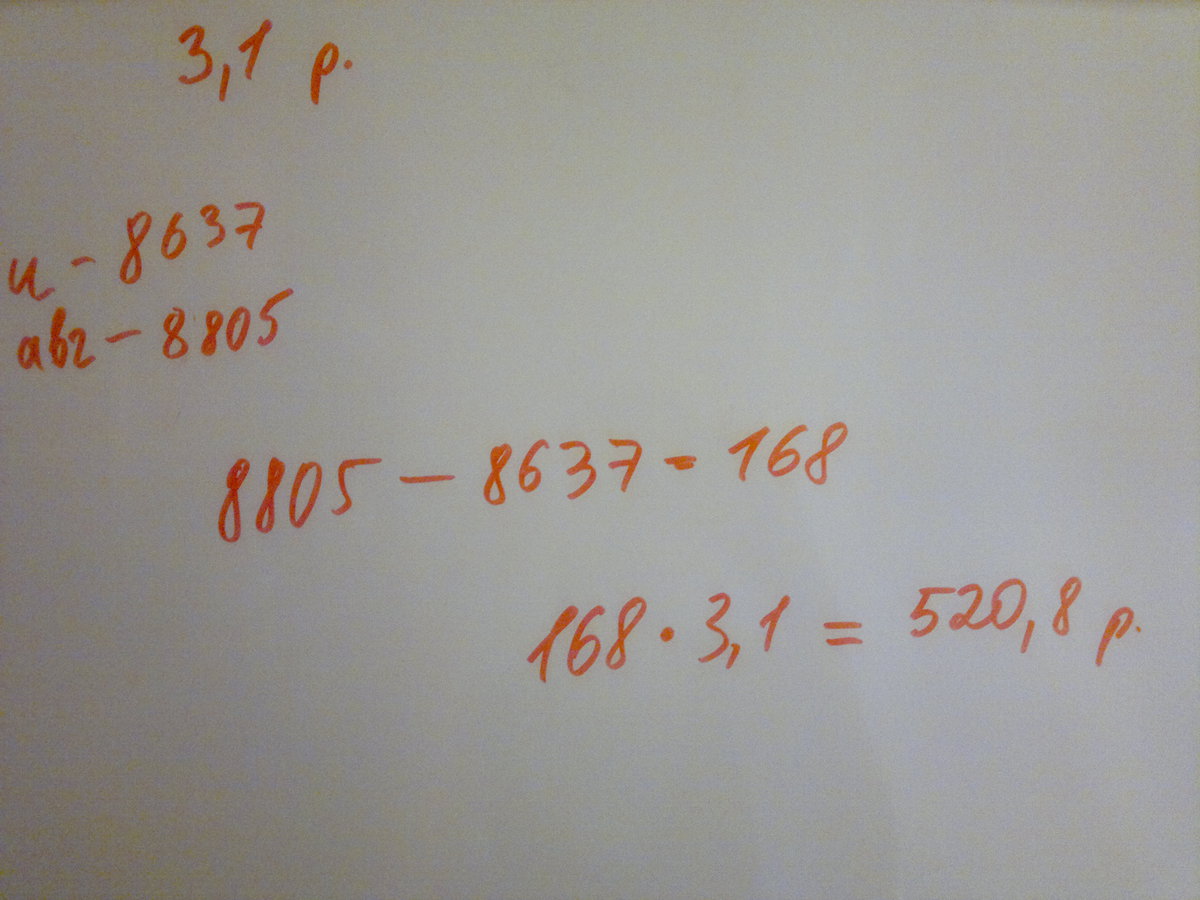 3,1 р.
и - 8637
авг - 8805
8805 - 8637 = 168
168 · 3,1 = 520,8 р.